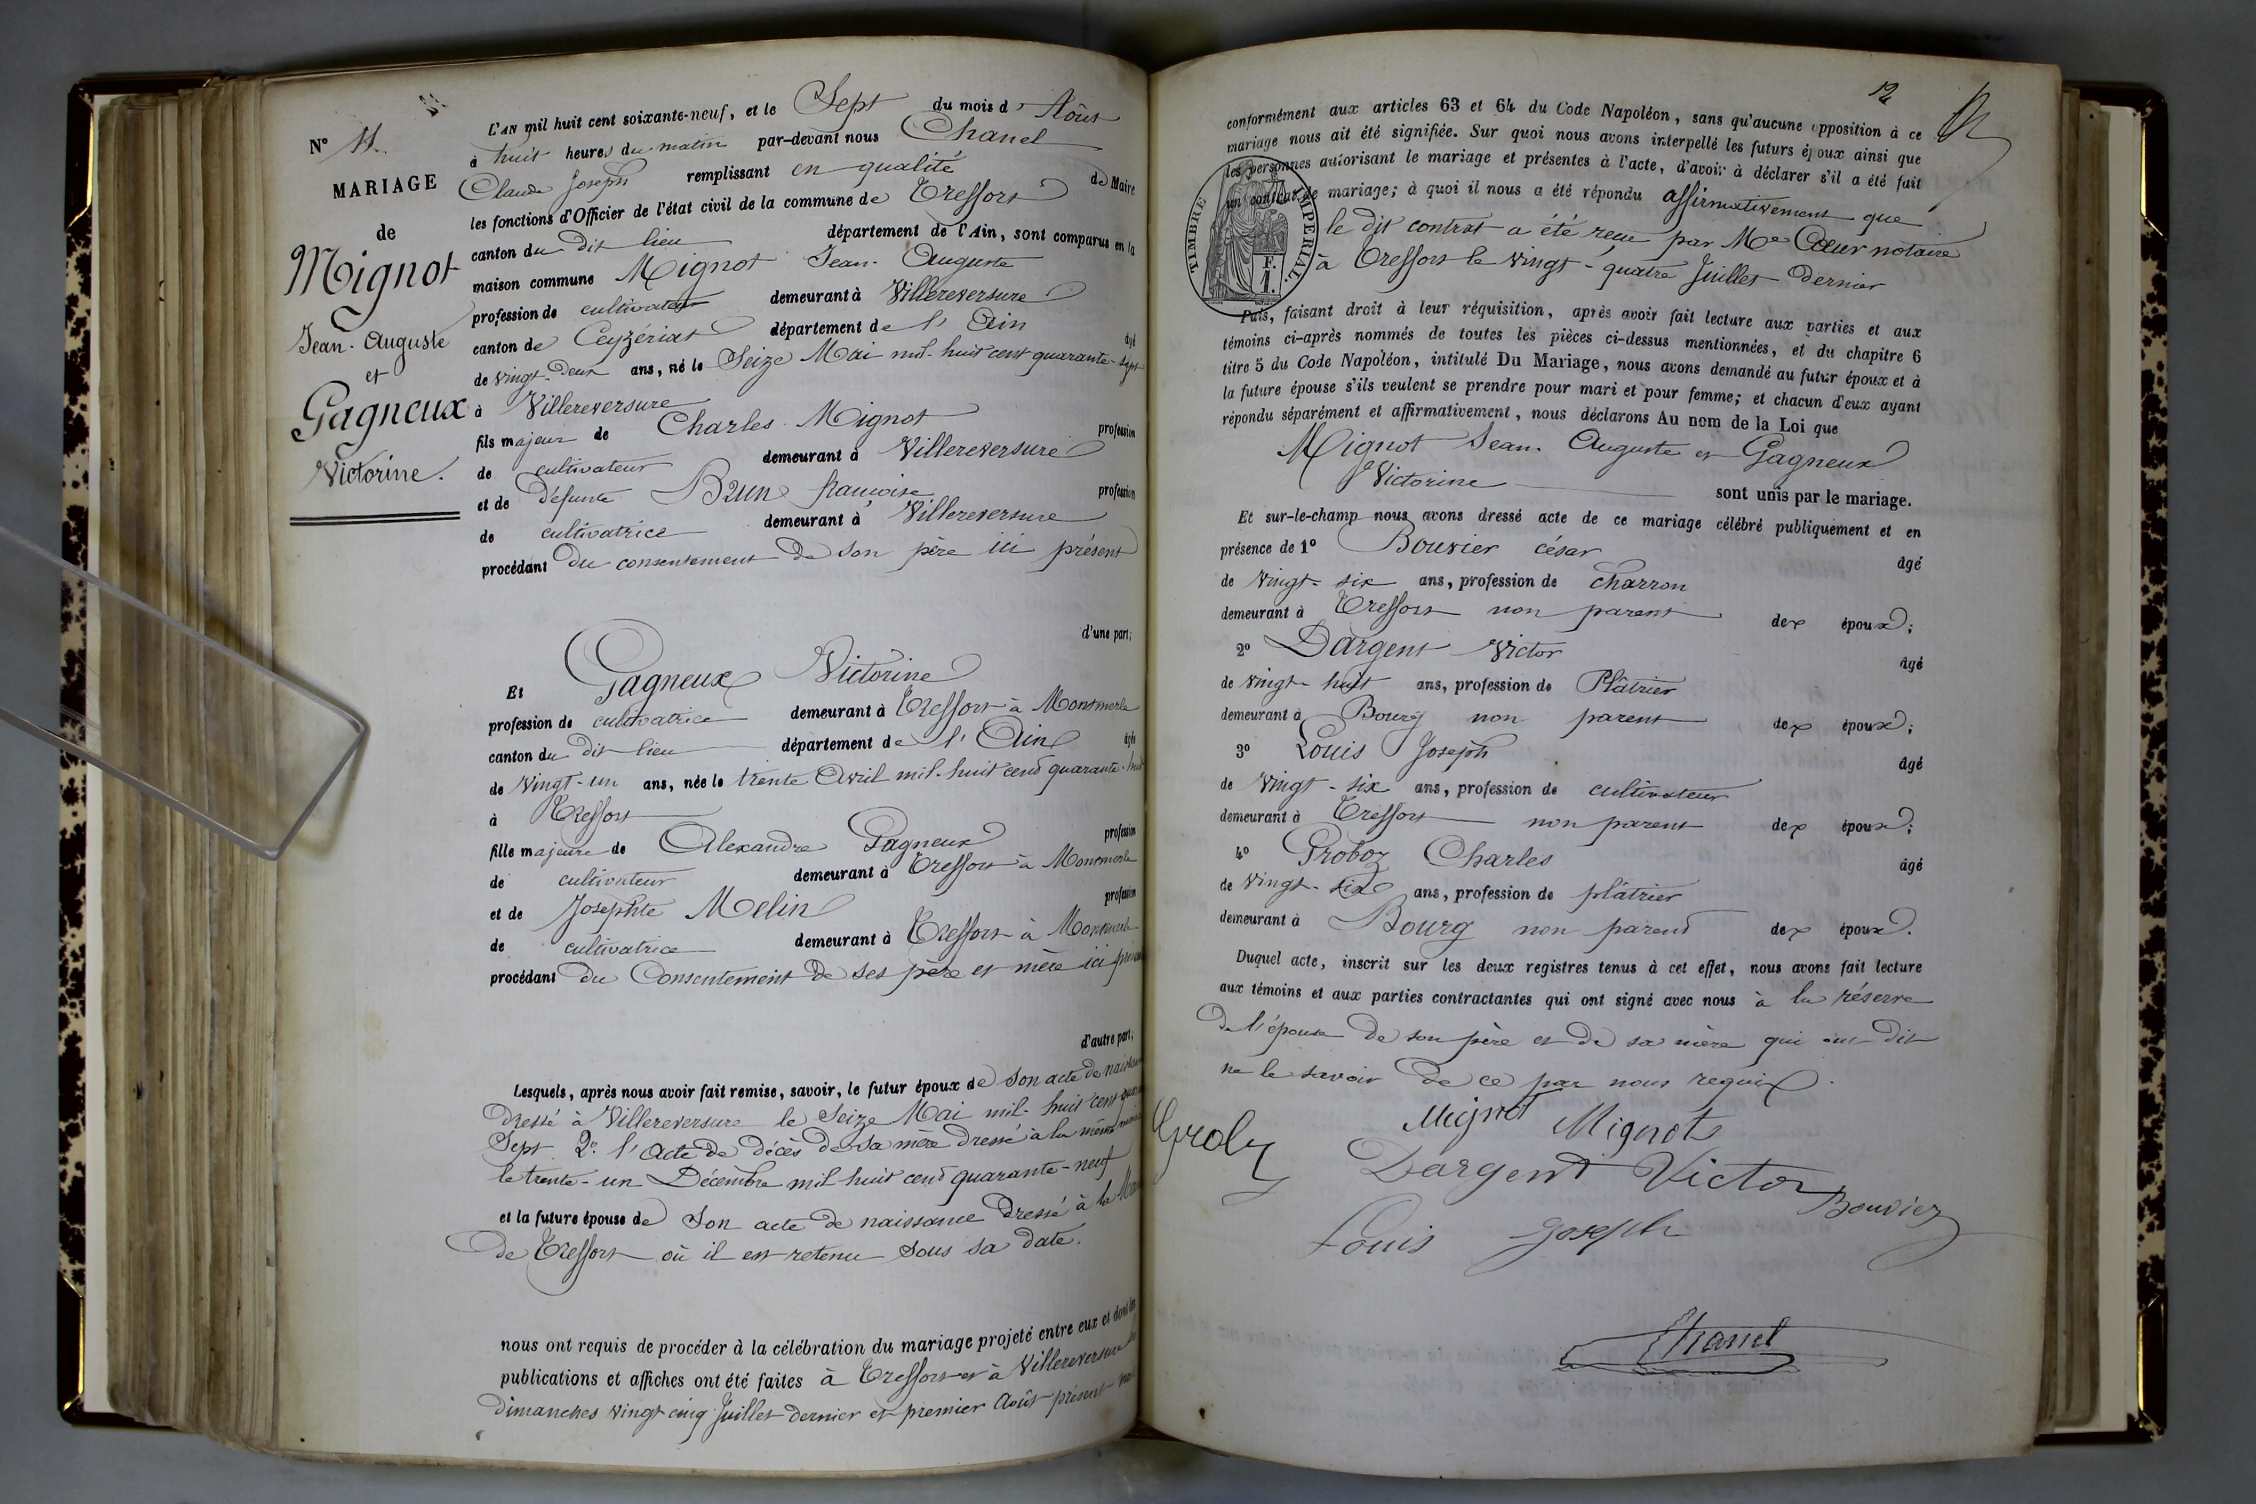 N° 11.
MARIAGE
de
Mignot
Jean-Auguste
et
Gagneux
Victorine.
L'AN mil huit cent soixante-neuf, et le Sept du mois d'Aôut
à huit heures du matin par-devant nous Chanel
Claude Joseph remplissant en qualité de Maire
les fonctions d'Officier de l'état civil de la commune de Treffort
canton du dit lieu département de l'Ain, sont comparus en la
maison commune Mignot Jean-Auguste
profession de cultivateur demeurant à Villereversure
canton de Ceyzériat département de l'Ain âgé
de vingt-deux ans, né le Seize Mai mil-huit cent quarante-sept
à Villereversure
fils majeur de Charles Mignot profession
de cultivateur demeurant à Villereversure
et de défunte Brun françoise profession
de cultivatrice demeurant à Villereversure
procédant du consentement de son père ici présent
d'une part;
Et Gagneux Victorine
profession de cultivatrice demeurant à Treffort à Montmerle
canton du dit lieu département de l'Ain âgée
de vingt-un ans, née le trente Avril mil-huit cent quarante-huit
à Treffort
fille majeure de Alexandre Gagneux profession
de cultivateur demeurant à Treffort à Montmerle
et de Josephte Melin profession
de cultivatrice demeurant à Treffort à Montmerle
procédant du Consentement de ses père et mère ici
d'autre part;
Lesquels, après nous avoir fait remise, savoir, le futur époux de son acte de naissance
dressé à Villereversure le Seize Mai mil-huit cent
Sept 2° l'Acte de décès de sa mère dressé à la même
le trente-un Décembre mil huit cent quarante-neuf
et la future épouse de Son acte de naissance dressé à la
de Treffort où il est retenu sous sa date.
nous ont requis de procéder à la célébration du mariage projeté entre eux et dont les
publications et affiches ont été faites à Treffort et à Villereversure
dimanches vingt cinq Juillet dernier et premier Août présent
12
conformément aux articles 63 et 64 du Code Napoléon, sans qu'aucune opposition à ce
mariage nous ait été signifiée. Sur quoi nous avons interpellé les futurs époux ainsi que
les personnes autorisant le mariage et présentes à l'acte, d'avoir à déclarer s'il a été fait
un contrat de mariage; à quoi il nous a été répondu affirmativement que
le dit contrat a été reçu par Me Cœur notaire
à Treffort le vingt-quatre Juillet dernier
TIMBRE IMPERIAL.
F.
1.
Puis, faisant droit à leur réquisition, après avoir fait lecture aux parties et aux
témoins ci-après nommés de toutes les pièces ci-dessus mentionnées, et du chapitre 6
titre 5 du Code Napoléon, intitulé Du Mariage, nous avons demandé au futur époux et à
la future épouse s'ils veulent se prendre pour mari et pour femme; et chacun d'eux ayant
répondu séparément et affirmativement, nous déclarons Au nom de la Loi que
Mignot Jean-Auguste et Gagneux
Victorine sont unis par le mariage.
Et sur-le-champ nous avons dressé acte de ce mariage célébré publiquement et en
présence de 1° Bouvier césar âgé
de vingt-six ans, profession de charron
demeurant à Treffort non parent des époux;
2° Dargent Victor âgé
de vingt-huit ans, profession de Plâtrier
demeurant à Bourg non parent des époux;
3° Louis Joseph âgé
de vingt-six ans, profession de cultivateur
demeurant à Treffort non parent des époux;
4° Groboz Charles âgé
de vingt-six ans, profession de plâtrier
demeurant à Bourg non parent des époux.
Duquel acte, inscrit sur les deux registres tenus à cet effet, nous avons fait lecture
aux témoins et aux parties contractantes qui ont signé avec nous à la réserve
de l'épouse de son père et de sa mère qui ont dit
ne le savoir de ce par nous requis.
Mignot Mignot
Dargent Victor
Bouvier
Louis Joseph
Chanel